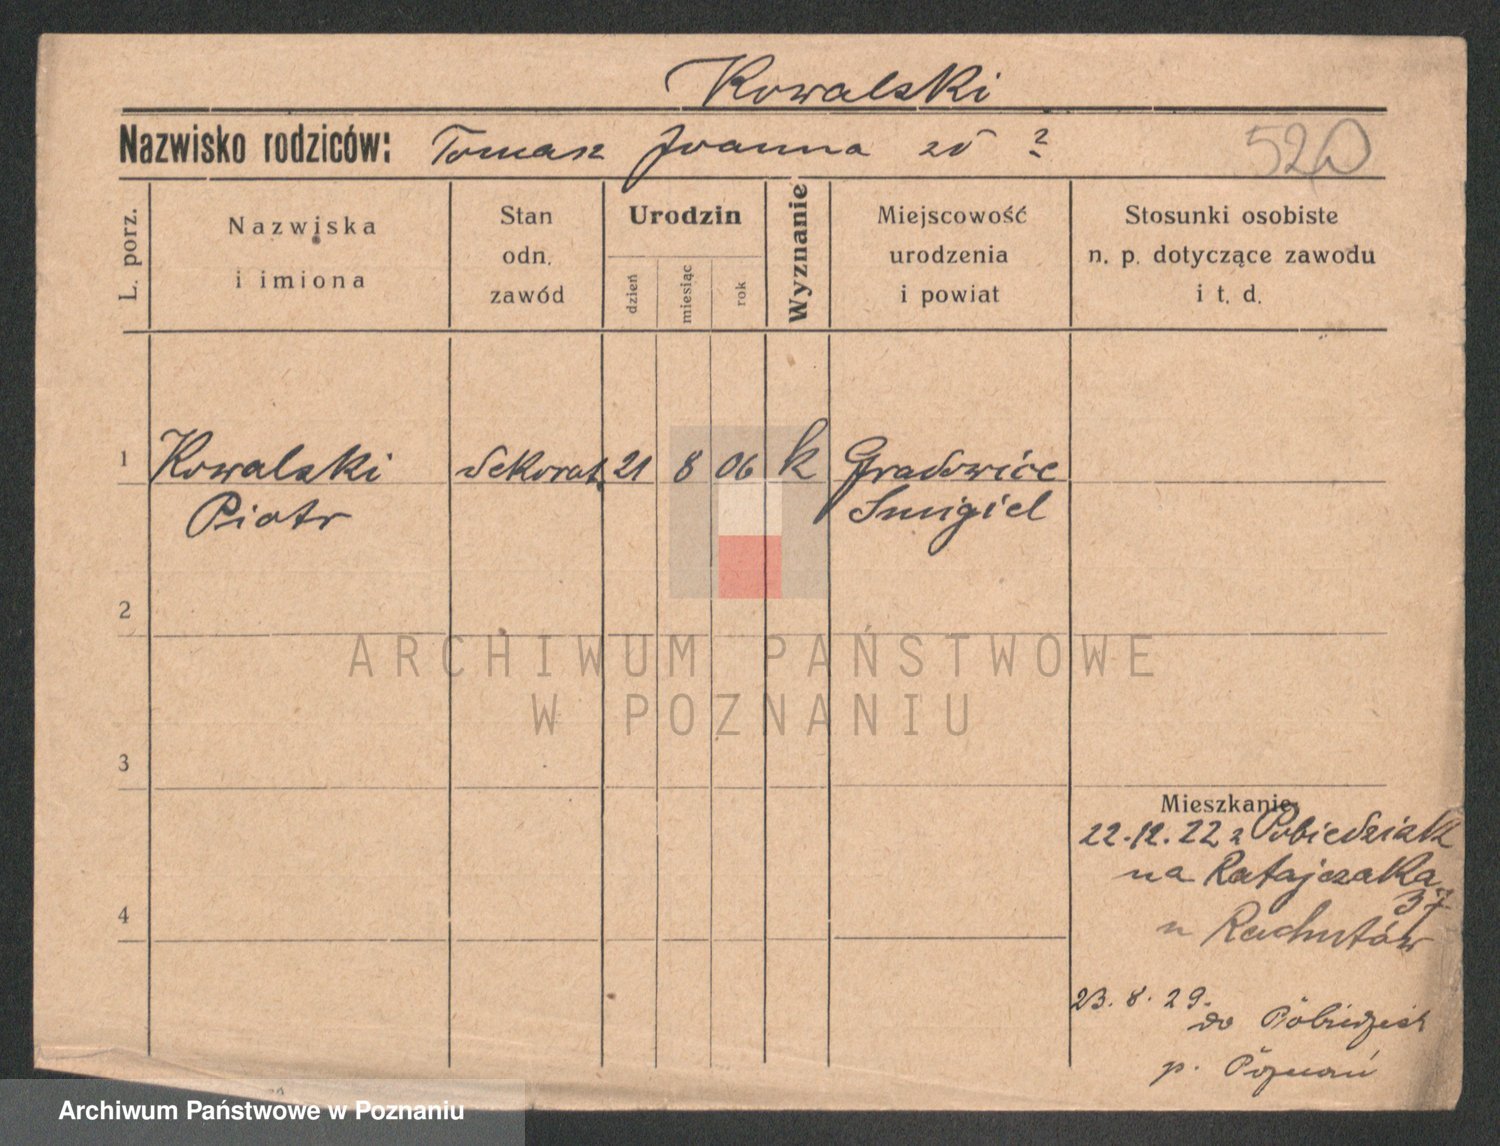 Kowalski
Nazwisko rodziców: Tomasz Joanna zd ?
520
L. porz.
Nazwiska i imiona
Stan odn. zawód
Urodzin
dzień
miesiąc
rok
Wyznanie
Miejscowość urodzenia i powiat
Stosunki osobiste n. p. dotyczące zawodu i t. d.
1 Kowalski dekorat. 21 8 06 k Gradowice
Piotr Smigiel
2
3
4
Mieszkanie:
22.12.22 z Pobiedzisk
na Ratajczaka
37
u Rachutów
23. 8. 29.
do Pobiedzisk
p. Poznań
ARCHIWUM PAŃSTWOWE
W POZNANIU
Archiwum Państwowe w Poznaniu